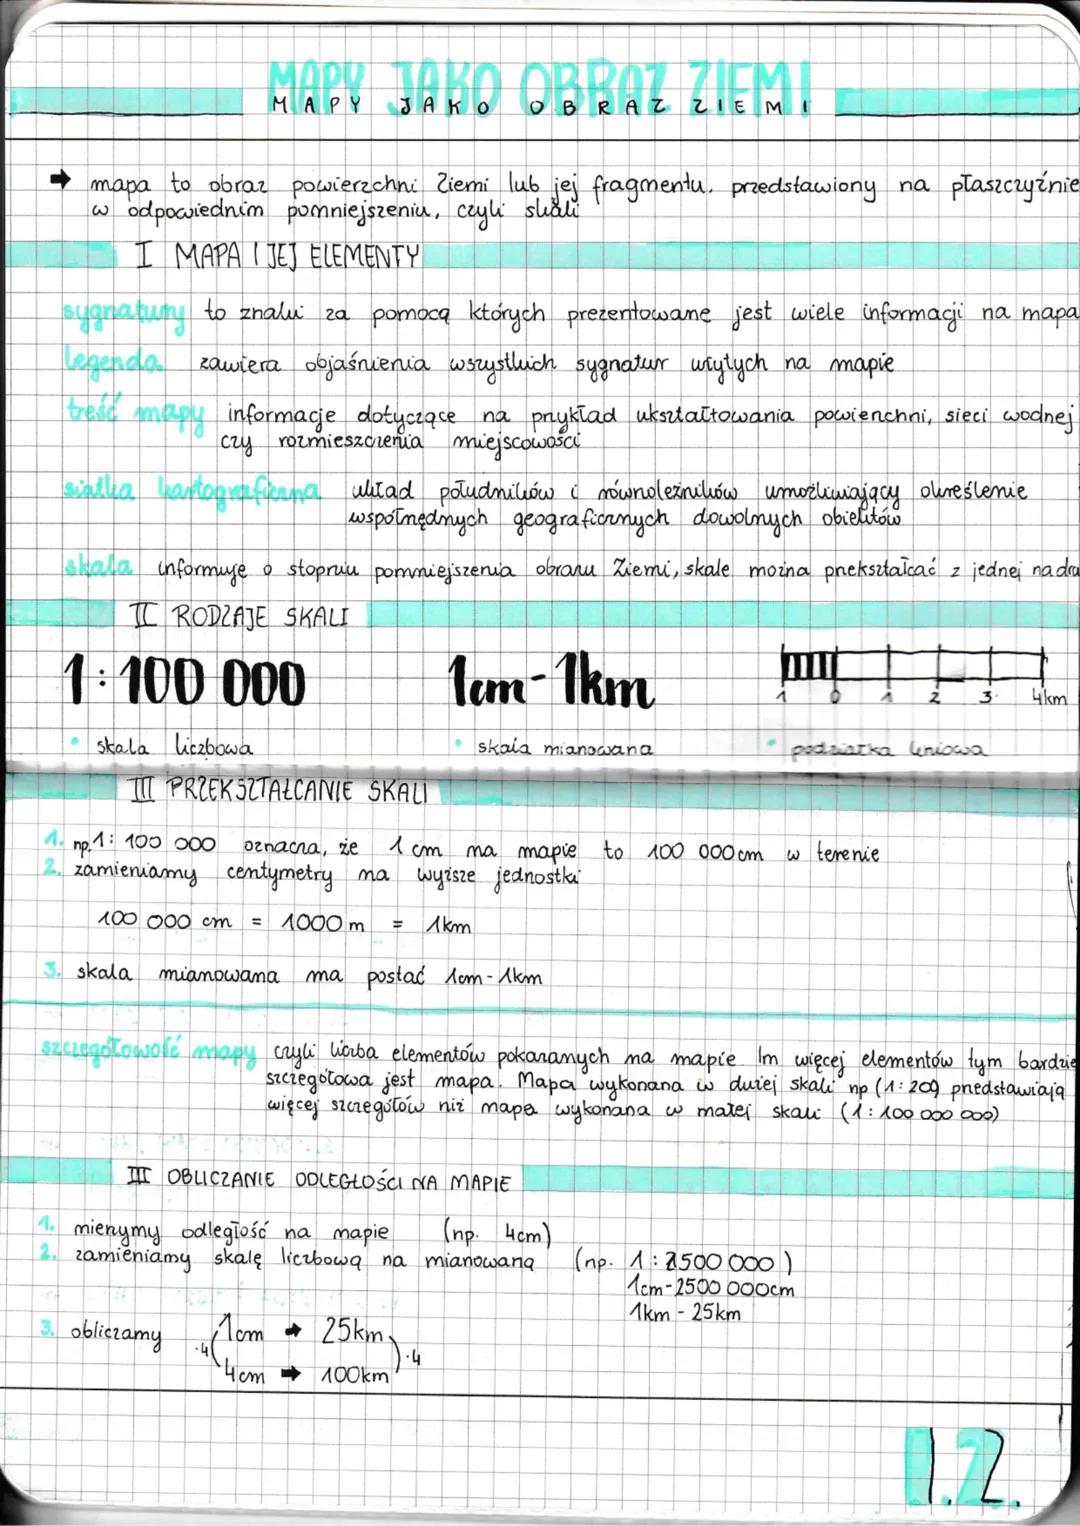 MAPY JAKO OBRAZ ZIEMI
➡ mapa to obraz powierzchni Ziemi lub jej fragmentu, przedstawiony na płaszczyźnie
w odpowiednim pomniejszeniu, czyli skali
I MAPA I JEJ ELEMENTY
sygnatury to znaki za pomocą których prezentowane jest wiele informacji na mapa
legenda zawiera objaśnienia wszystkich sygnatur użytych na mapie
treść mapy informacje dotyczące na przykład ukształtowania powierzchni, sieci wodnej
czy rozmieszczenia miejscowości
siatka kartograficzna układ południków i równoleżników umożliwiający określenie
współrzędnych geograficznych dowolnych obiektów
skala informuje o stopniu pomniejszenia obrazu Ziemi, skale można przekształcać z jednej na dru
II RODZAJE SKALI
1:100 000 1cm-1km 1 0 1 2 3 4km
• skala liczbowa • skala mianowana • podziałka liniowa
III PRZEKSZTAŁCANIE SKALI
1. np. 1: 100 000 oznacza, że 1 cm na mapie to 100 000cm w terenie
2. zamieniamy centymetry na wyższe jednostki
100 000 cm = 1000 m = 1km
3. skala mianowana ma postać 1cm-1km
szczegółowość mapy czyli liczba elementów pokazanych na mapie. Im więcej elementów tym bardzie
szczegółowa jest mapa. Mapa wykonana w dużej skali np (1: 200) przedstawiają
więcej szczegółów niż mapa wykonana w małej skali (1: 100 000 000)
III OBLICZANIE ODLEGŁOŚCI NA MAPIE
1. mierzymy odległość na mapie (np. 4cm)
2. zamieniamy skalę liczbową na mianowaną (np. 1:2500 000)
1cm-2500 000cm
1km - 25km
3. obliczamy 1cm ➡ 25km
·4 ·4
4cm ➡ 100km
1.2.